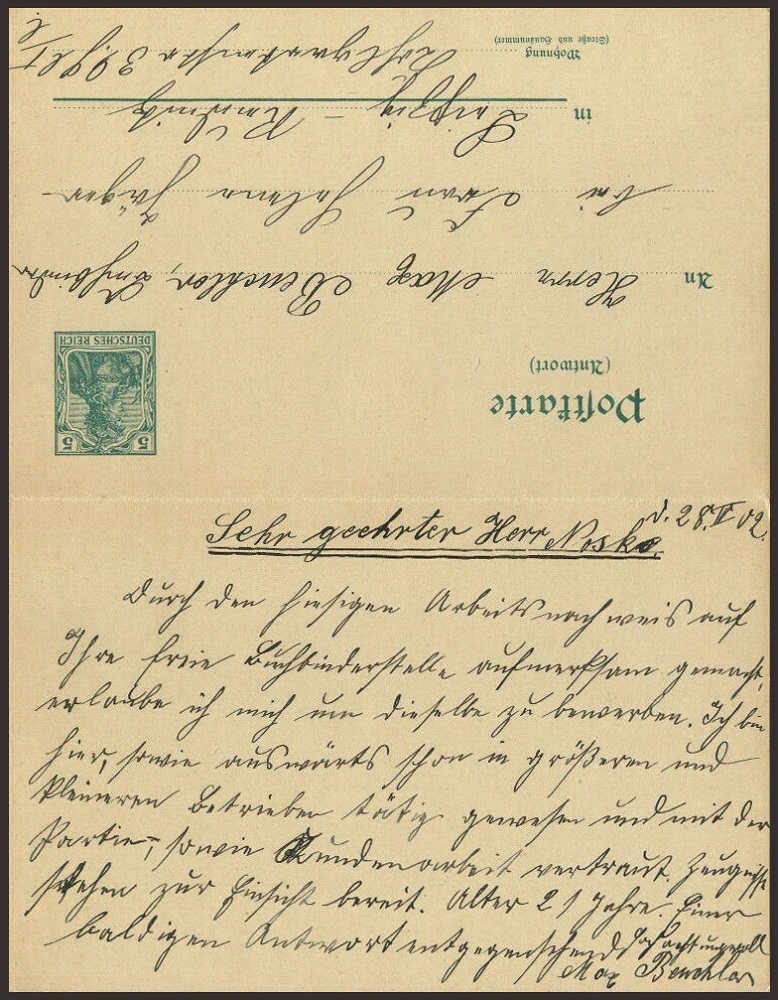 Postkarte
(Antwort)
DEUTSCHES REICH
5 5
An Herrn Max Beuchler, Buchbinder
bei Frau Helene Jäger
in Leipzig – Reudnitz
Wohnung
(Straße und Hausnummer)
39
d. 28. II 02.
Sehr geehrter Herr Noske.
Durch den hiesigen Arbeitsnachweis auf
Ihre freie Buchbinderstelle aufmerksam gemacht,
erlaube ich mich um dieselbe zu bewerben. Ich bin
hier, sowie auswärts schon in größeren und
kleineren Betrieben tätig gewesen und mit der
Partie-, sowie Kundenarbeit vertraut. Zeugnisse
stehen zur Einsicht bereit. Alter 21 Jahre. Einer
baldigen Antwort entgegensehend Hochachtungsvoll
Max Beuchler